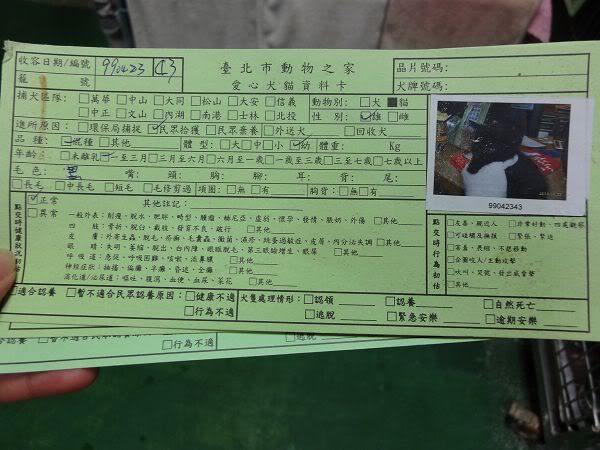 收容日期/編號 990423 C3
籠 號
臺北市動物之家
愛心犬貓資料卡
晶片號碼:
犬牌號碼:
捕犬區隊: □萬華□中山□大同□松山□大安□信義 動物別: □犬■貓
□中正□文山□內湖□南港□士林□北投 性 別: ☑雄□雌
進所原因: □環保局捕捉☑民眾拾獲□民眾棄養□外送犬 □回收犬
品 種: ☑混種□其他 體 型: □大□中□小☑幼體重: Kg
年齡: □未離乳☑一至三月□三月至六月□六月至一歲□一歲至三歲□三至七歲□七歲以上
毛 色: 黑 嘴: 頭: 胸: 腳: 耳: 背: 尾:
□長毛 □中長毛 □短毛 □毛修剪過 項圈: □無□有 胸背: □無□有
99042343
點交時健康狀況初估
☑正常 其他註記:
□異常
一般外表: 削瘦、脫水、肥胖、畸型、腫瘤、赫尼亞、虛弱、懷孕、發情、脹奶、外傷 □其他
四 肢: 骨折、脫臼、截肢、發育不良、跛行 □其他
皮 膚: 外寄生蟲、脫毛、疥癬、毛囊蟲、黴菌、濕疹、跳蚤過敏症、皮屑、內分泌失調 □其他
眼 睛: 失明、萎縮、脫出、白內障、眼瞼脫毛、第三眼瞼增生、眼屎 □其他
呼 吸 道: 急促、呼吸困難、咳嗽、流鼻膿 □其他
神經症狀: 抽搐、偏癱、半癱、昏迷、全癱 □其他
消化道/泌尿道: 嘔吐、腹瀉、血便、血尿、菜花 □其他
點交時行為初估
□友善、親近人 □非常好動、四處觀察
□可碰觸及撫摸 □緊張、緊迫
□害羞、畏縮、不想移動
□企圖咬人/主動攻擊
□吠叫、哭號、發出威脅聲
□其他
□適合認養 □暫不適合民眾認養原因: □健康不適 犬隻處理情形: □認領 □認養 □自然死亡
□行為不適 □逃脫 □緊急安樂 □逾期安樂
合認養 □暫不適合民眾認養
□行為不適 □逃脫